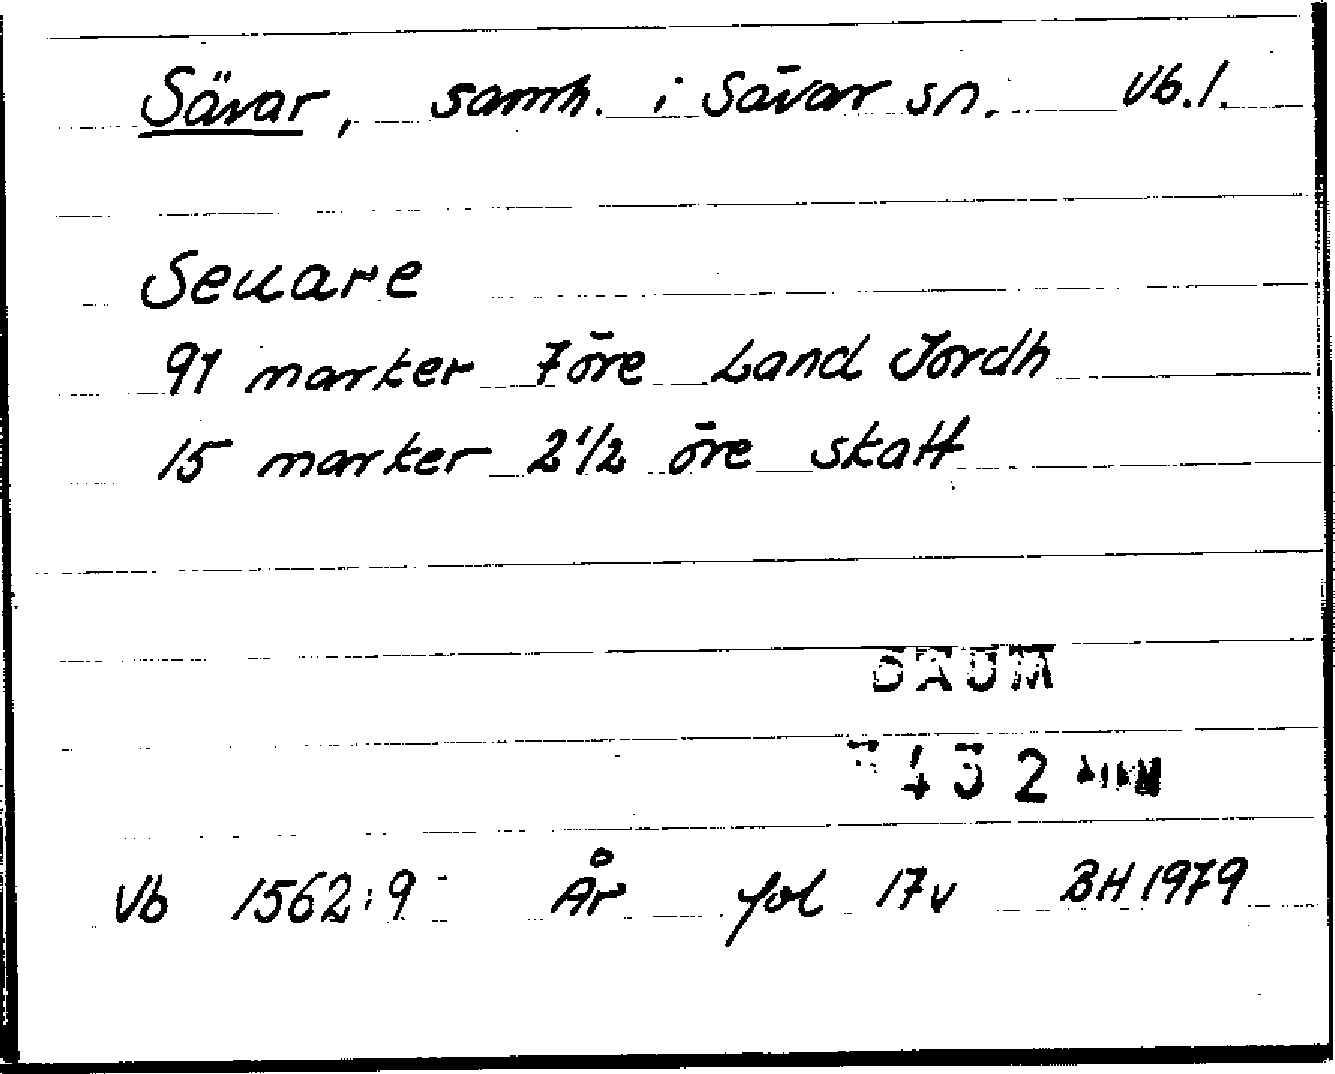 Sävar, samh. i Sävar sn. Vb.l.
Seuare
91 marker 7 öre Land Jordh
15 marker 2 1/2 öre skatt
DAUM
Vb 1562:9 År fol 17v BH 1979